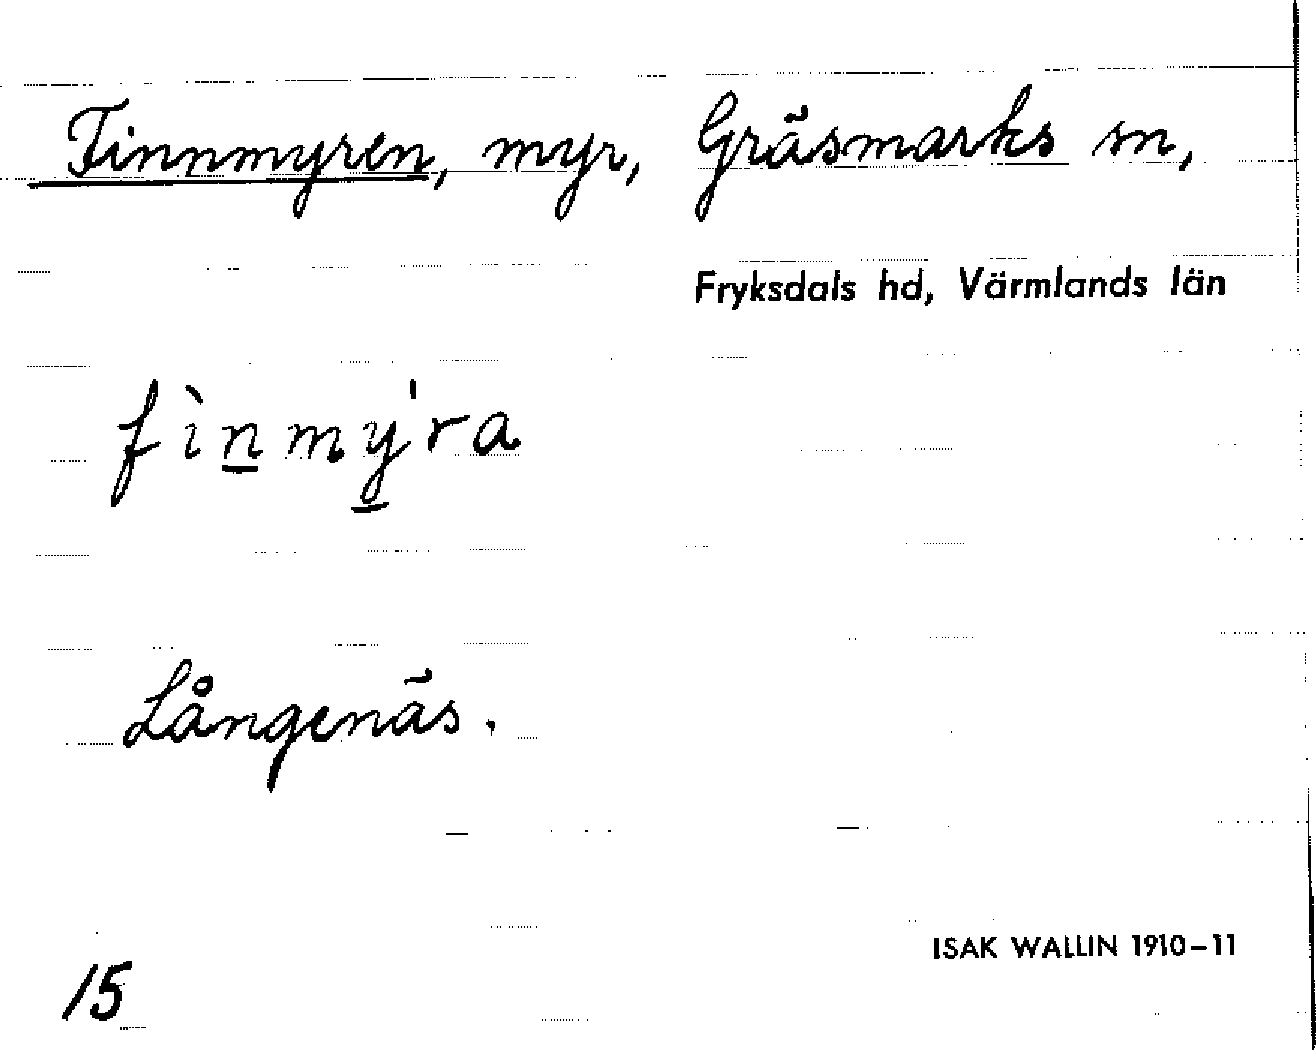 Finnmyren, myr, Gräsmarks sn,
Fryksdals hd, Värmlands län
fìnmy̠'ra
Långenäs.
ISAK WALLIN 1910–11
15